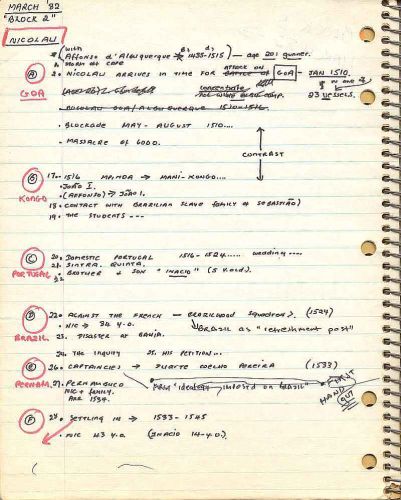 MARCH 82
"BLOCK 2"
NICOLAU
(with
Affonso d'Albuquerque b. 1435-1515) d. — age 20: gunner.
A 2. NICOLAU ARRIVES IN TIME FOR ATTACK ON GOA — JAN 1510.
GOA
concentrate
23 VESSELS.
NICOLAU GOA/ALBUQUERQUE 1510-1516
• BLOCKADE MAY - AUGUST 1510....
• MASSACRE OF 6000.
CONTRAST
B 17. - 1516 MANI-KONGO....
• JOÃO I.
KONGO • (AFFONSO) → JOÃO I.
18. CONTACT WITH BRAZILIAN SLAVE FAMILY OF SEBASTIÃO)
19. THE STUDENTS ---
C 20. DOMESTIC PORTUGAL 1516-1524...... wedding ....
21. SINTRA. QUINTA.
PORTUGAL 22. BROTHER + SON "INACIO" (5 Y.OLD).
D 22. AGAINST THE FRENCH — BRAZILWOOD SQUADRONS. (1527)
• NIC → 34 Y.O. BRAZIL AS "refreshment post"
BRAZIL 23. DISASTER OF BAHIA.
24. THE INQUIRY 25. HIS PETITION...
E 26. CAPTAINCIES → DUARTE COELHO PEREIRA (1533)
PERNAM. 27. PERNAMBUCO "identity interest on BRAZIL" → FIRST HAND OUT
NIC + family.
ARR 1534.
F 28. SETTLING IN → 1533 - 1545
• NIC 43 Y.O. (INACIO 14-Y.O.)